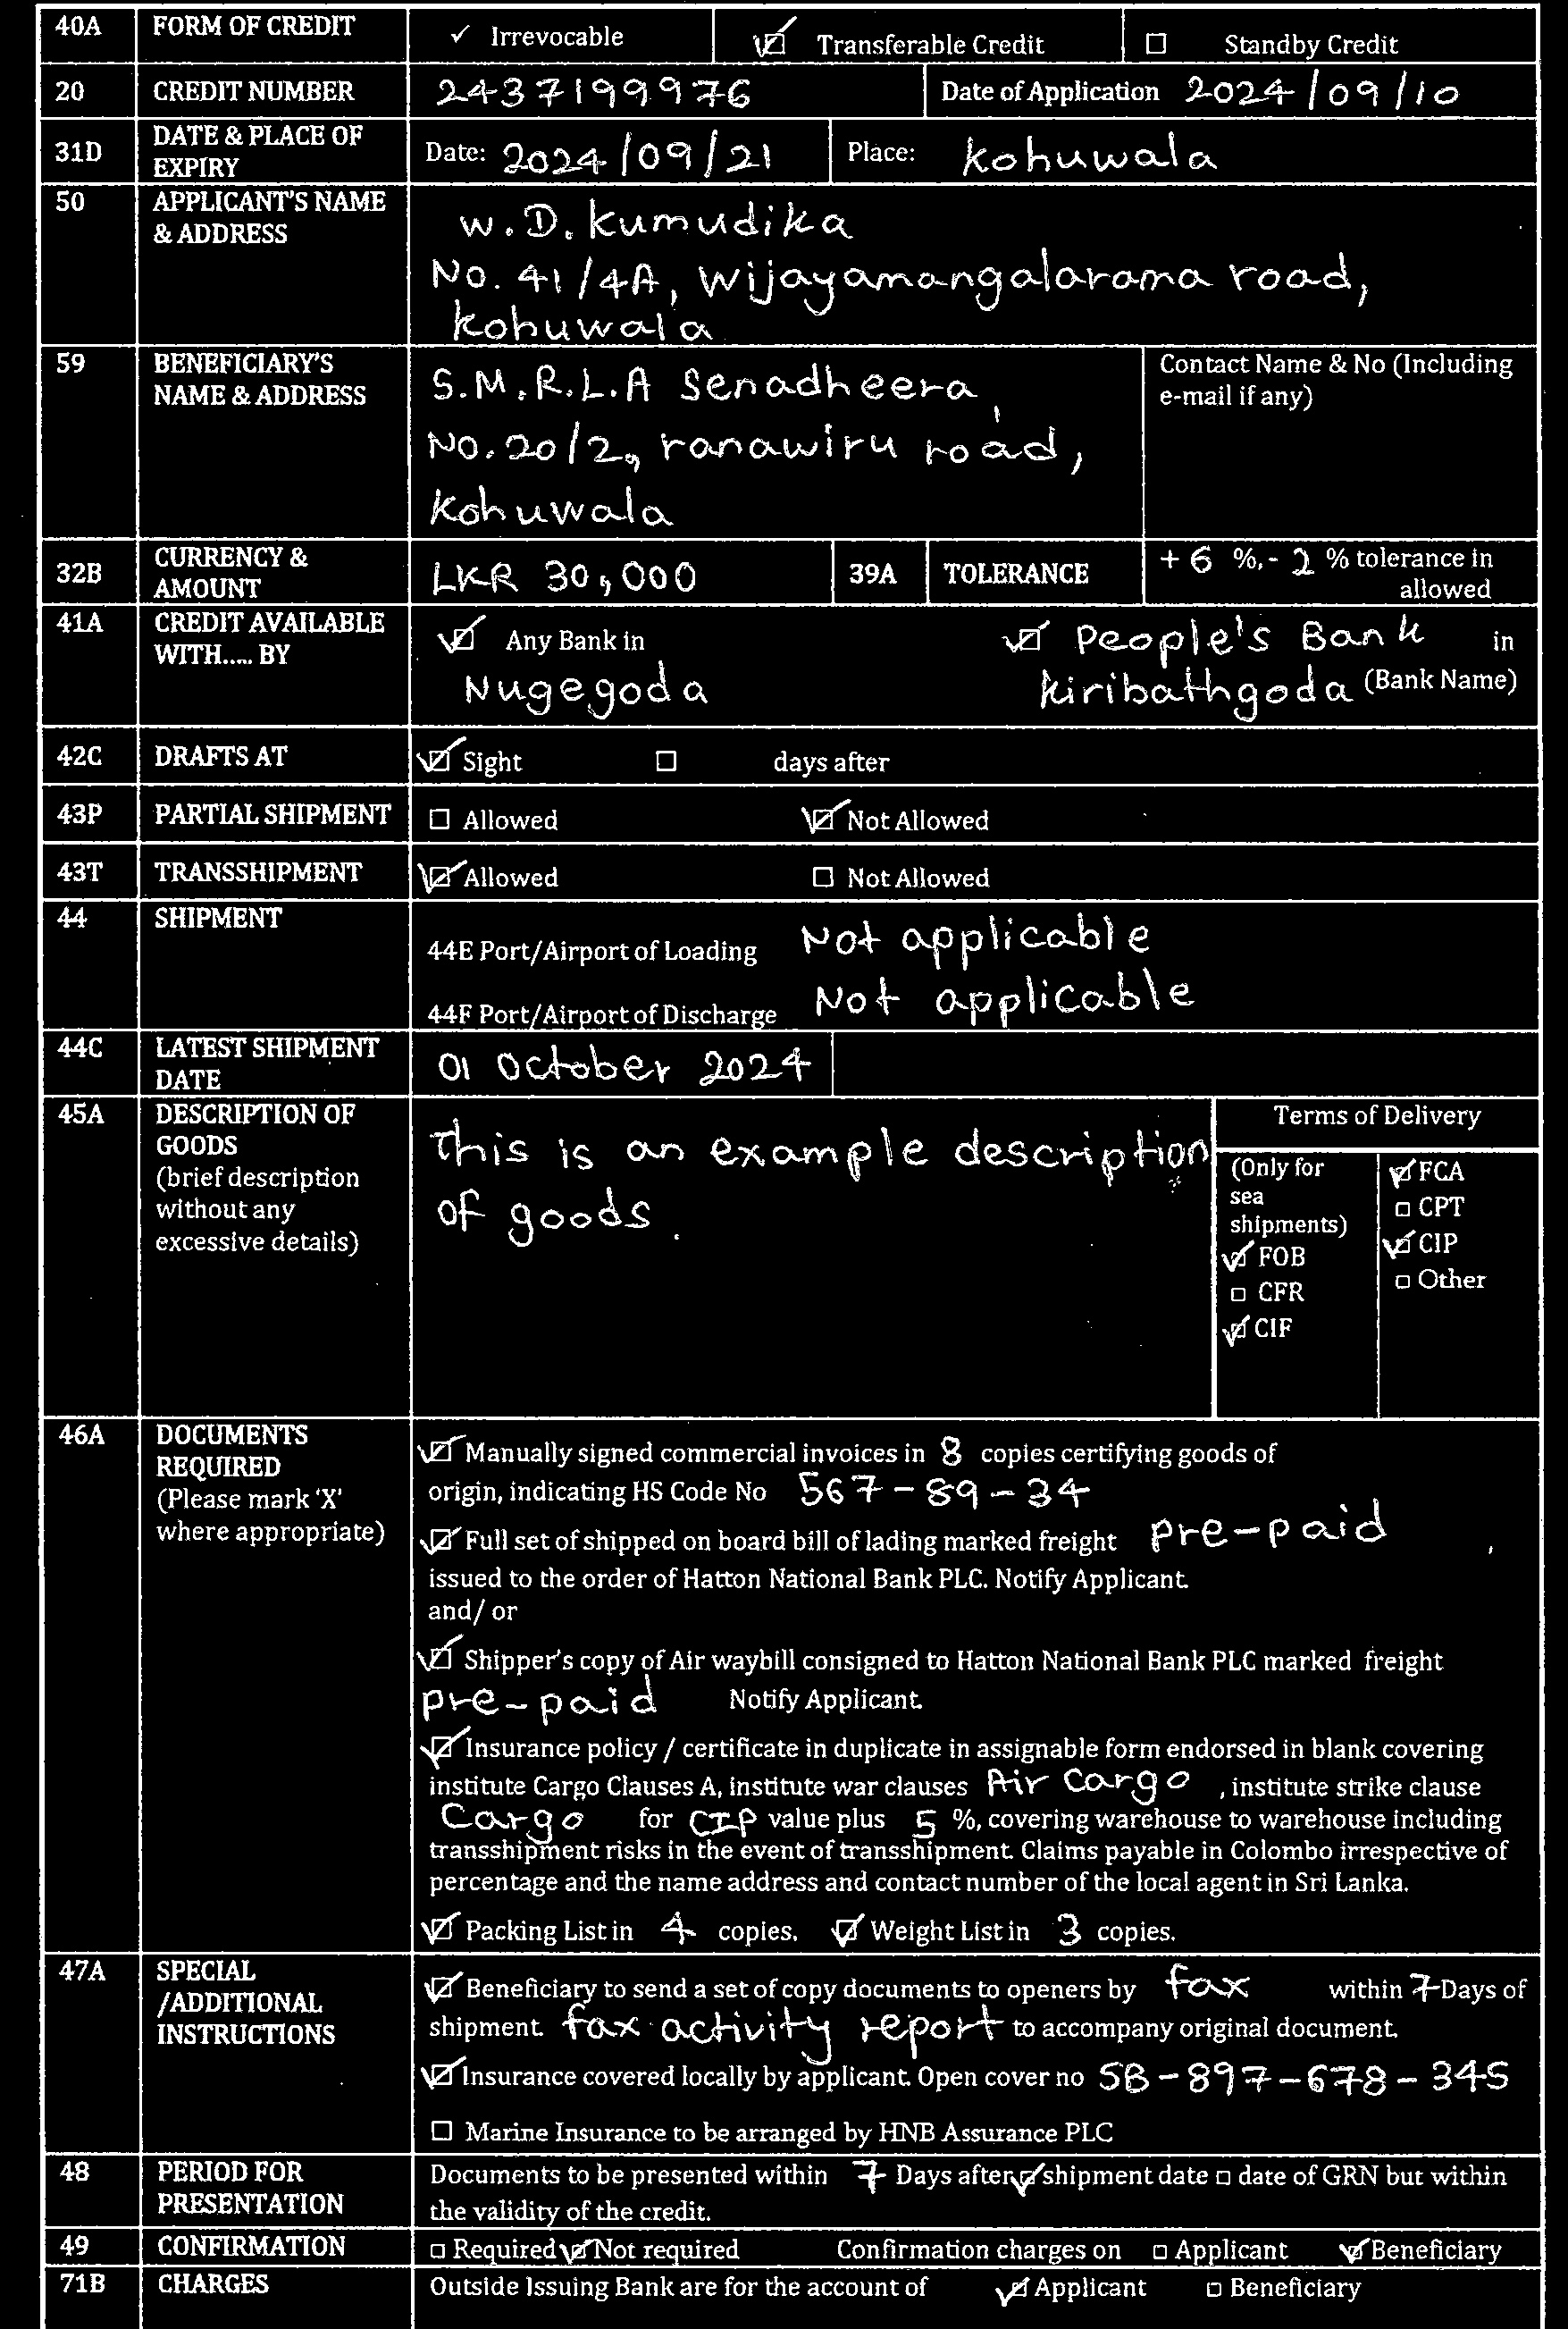 40A FORM OF CREDIT ✓ Irrevocable ☑ Transferable Credit ☐ Standby Credit
20 CREDIT NUMBER 2437199976 Date of Application 2024/09/10
31D DATE & PLACE OF EXPIRY Date: 2024/09/21 Place: Kohuwala
50 APPLICANT'S NAME & ADDRESS
W.D. Kumudika
No. 41/4A, Wijayamangalarama road,
Kohuwala
59 BENEFICIARY'S NAME & ADDRESS
S.M.R.L.A Senadheera,
No.20/2, ranawiru road,
Kohuwala
Contact Name & No (Including
e-mail if any)
32B CURRENCY & AMOUNT LKR 30,000 39A TOLERANCE + 6 %,- 2 % tolerance in
allowed
41A CREDIT AVAILABLE WITH..... BY
☑ Any Bank in ☑ People's Bank in
Nugegoda Kiribathgoda (Bank Name)
42C DRAFTS AT ☑ Sight ☐ days after
43P PARTIAL SHIPMENT ☐ Allowed ☑ Not Allowed
43T TRANSSHIPMENT ☑ Allowed ☐ Not Allowed
44 SHIPMENT
44E Port/Airport of Loading Not applicable
44F Port/Airport of Discharge Not applicable
44C LATEST SHIPMENT DATE 01 October 2024
45A DESCRIPTION OF
GOODS
(brief description
without any
excessive details)
This is an example description
of goods.
Terms of Delivery
(Only for
sea
shipments)
☑ FOB
☐ CFR
☑ CIF
☑ FCA
☐ CPT
☑ CIP
☐ Other
46A DOCUMENTS
REQUIRED
(Please mark 'X'
where appropriate)
☑ Manually signed commercial invoices in 8 copies certifying goods of
origin, indicating HS Code No 567-89-34
☑ Full set of shipped on board bill of lading marked freight pre-paid ,
issued to the order of Hatton National Bank PLC. Notify Applicant.
and/ or
☑ Shipper's copy of Air waybill consigned to Hatton National Bank PLC marked freight
pre-paid Notify Applicant.
☑ Insurance policy / certificate in duplicate in assignable form endorsed in blank covering
institute Cargo Clauses A, institute war clauses Air Cargo , institute strike clause
Cargo for CIP value plus 5 %, covering warehouse to warehouse including
transshipment risks in the event of transshipment. Claims payable in Colombo irrespective of
percentage and the name address and contact number of the local agent in Sri Lanka.
☑ Packing List in 4 copies. ☑ Weight List in 3 copies.
47A SPECIAL
/ADDITIONAL
INSTRUCTIONS
☑ Beneficiary to send a set of copy documents to openers by fax within 7 Days of
shipment. fax activity report to accompany original document.
☑ Insurance covered locally by applicant. Open cover no SB-897-678-345
☐ Marine Insurance to be arranged by HNB Assurance PLC
48 PERIOD FOR
PRESENTATION
Documents to be presented within 7 Days after ☑ shipment date ☐ date of GRN but within
the validity of the credit.
49 CONFIRMATION ☐ Required ☑ Not required Confirmation charges on ☐ Applicant ☑ Beneficiary
71B CHARGES Outside Issuing Bank are for the account of ☑ Applicant ☐ Beneficiary